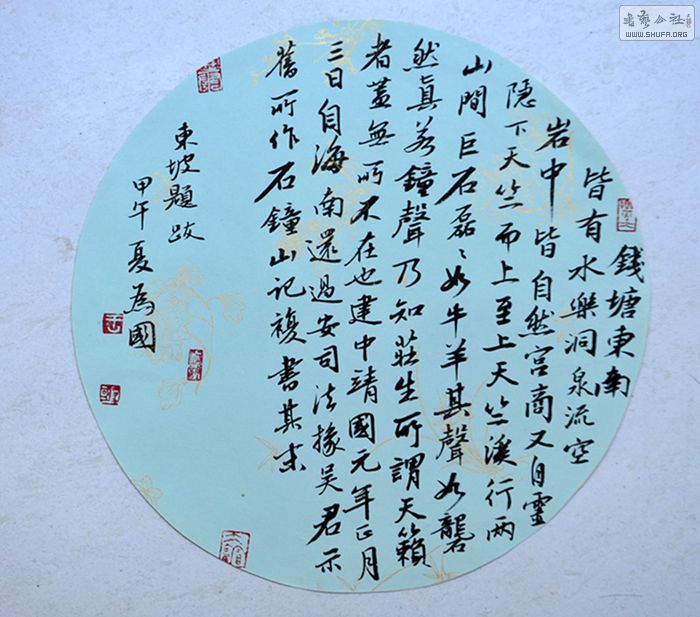 錢塘東南
皆有水樂洞泉流空
岩中皆自然宮商又自靈
隱下天竺而上至上天竺溪行兩
山間巨石磊〻如牛羊其聲如礱
然真若鐘聲乃知莊生所謂天籟
者蓋無所不在也建中靖國元年正月
三日自海南還過安司法掾吴君示
舊所作石鐘山記複書其末
東坡題跋
甲午夏為國
書藝公社
WWW.SHUFA.ORG